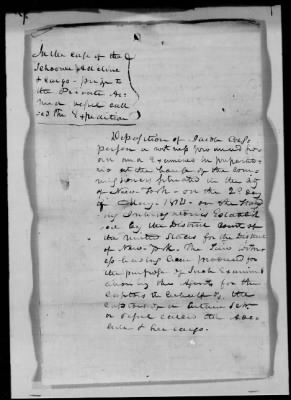 In the case of the
Schooner Adeline
& cargo - prize to
the Private Ar-
med vessel call
ed the Expedition

Deposition of Jacob
person a witness produced sworn
and Examined in preparato-
rio at the house of the com-
missioner situated in the City
of New York - on the 2d day
of May 1814 - on the Stand-
ing Interrogatories Establish-
ed by the District Court of
the United States for the District
of New-York. The said witness
having been produced for
the purpose of such Examina-
tion by the Agents for the
captors in behalf of the
captors of a certain Schr.
or vessel called the Ade-
line & her cargo.